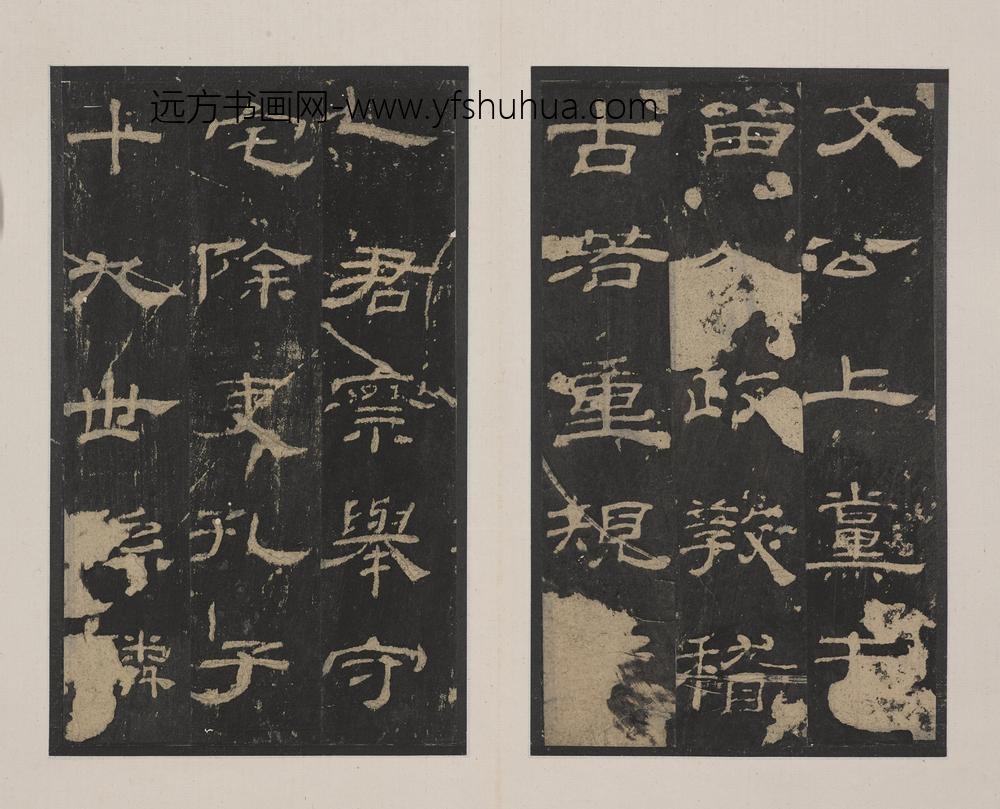 远方书画网-www.yfshuhua.com
文公上黨屯
留人政教稽
古若重規
乙君察舉守
宅除吏孔子
十九世孫麟